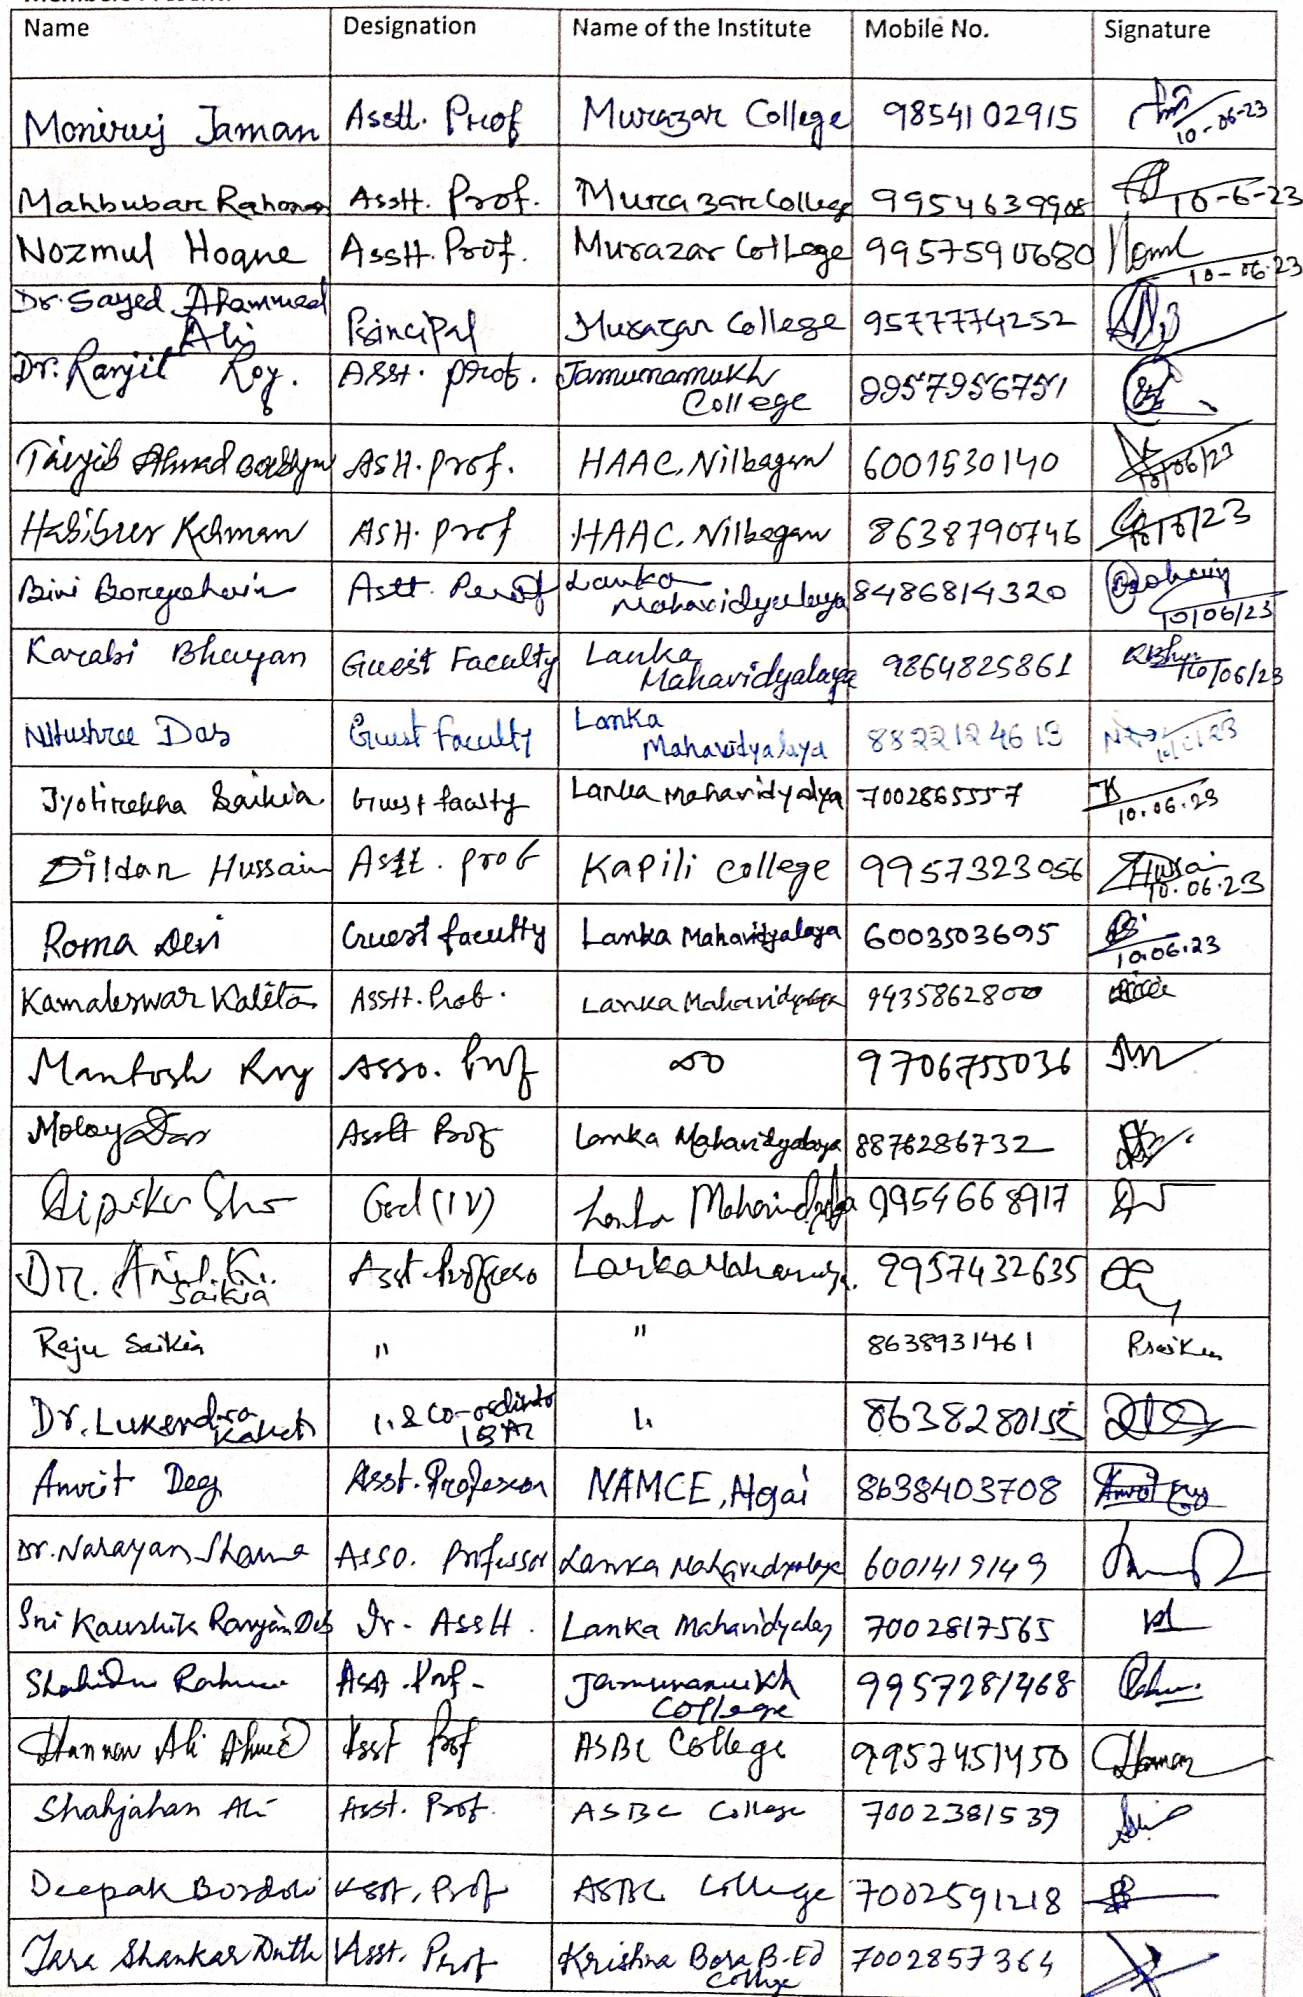 Name Designation Name of the Institute Mobile No. Signature
Moniruj Jaman Asstt. Prof Murazar College 9854102915 10-06-23
Mahbubar Rahman Asstt. Prof. Murazar College 9954639908 10-6-23
Nozmul Hoque Asstt. Prof. Murazar College 9957590680 10-06-23
Dr. Sayed Ahammed
Ali Principal Murazar College 9577774252
Dr. Ranjit Roy. Asst. Prof. Jamunamukh
College 9957956751
Ahmed Asstt. Prof. HAAC, Nilbagan 6001530140 10/06/23
Habibur Rehman Asstt. Prof HAAC, Nilbagan 8638790746 10/6/23
Bini Borgohain Astt. Prof Lanka
Mahavidyalaya 8486814320 10/06/23
Karabi Bhuyan Guest Faculty Lanka
Mahavidyalaya 9864825861 10/06/23
Nitushree Das Guest Faculty Lanka
Mahavidyalaya 8822124613
Jyotirekha Saikia Guest faculty Lanka Mahavidyalya 7002865557 10.06.23
Dildar Hussain Astt. prof Kapili College 9957323056 10.06.23
Roma Devi Guest faculty Lanka Mahavidyalaya 6003503695 10.06.23
Kamaleswar Kalita Asstt. Prof. Lanka Mahavidyalaya 9435862800
Mantosh Roy Asso. Prof do 9706755036
Moloy Das Asstt Prof Lanka Mahavidyalaya 8876286732
Dipika Sho (IV) Lanka Mahavidyalaya 9954668917
Dr. Anil K.
Saikia Asst. Professo Lanka 9957432635
Raju Saikia " " 8638931461 RSaikia
Dr. Lukendra
Kakati " & Co-ordinator
IQAC " 8638280155
Amrit Dey Asst. Professor NAMCE, Hojai 8638403708 Amrit Dey
Dr. Narayan Sharma Asso. Professor Lanka Mahavidyalaya 6001419149
Sri Kaushik Ranjan Deb Jr. Asstt. Lanka Mahavidyalay 7002817565
Shahidur Rahman Asst. Prof. Jamunamukh
College 9957281468
Hannan Ali Ahmed Asst Prof ASBC College 9957451450 Hannan
Shahjahan Ali Asst. Prof. ASBC College 7002381539
Deepak Bordoloi Asst. Prof ASBC College 7002591218
Tara Shankar Nath Asst. Prof Krishna Bora B.Ed
College 7002857364